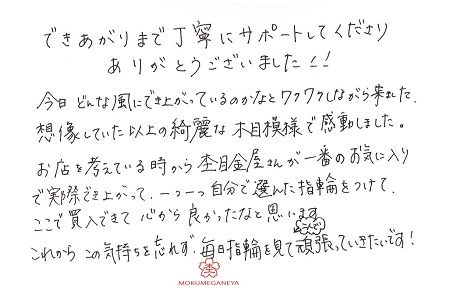 できあがりまで丁寧にサポートしてくださり
ありがとうございました!!
今日どんな風にでき上がっているのかなとワクワクしながら来ました。
想像していた以上の綺麗な木目模様で感動しました。
お店を考えている時から杢目金屋さんが一番のお気に入り
で実際でき上がって、一つ一つ自分で選んだ指輪をつけて、
ここで買入できて心から良かったなと思います
これからこの気持ちを忘れず、毎日指輪を見て頑張っていきたいです!
MOKUMEGANEYA